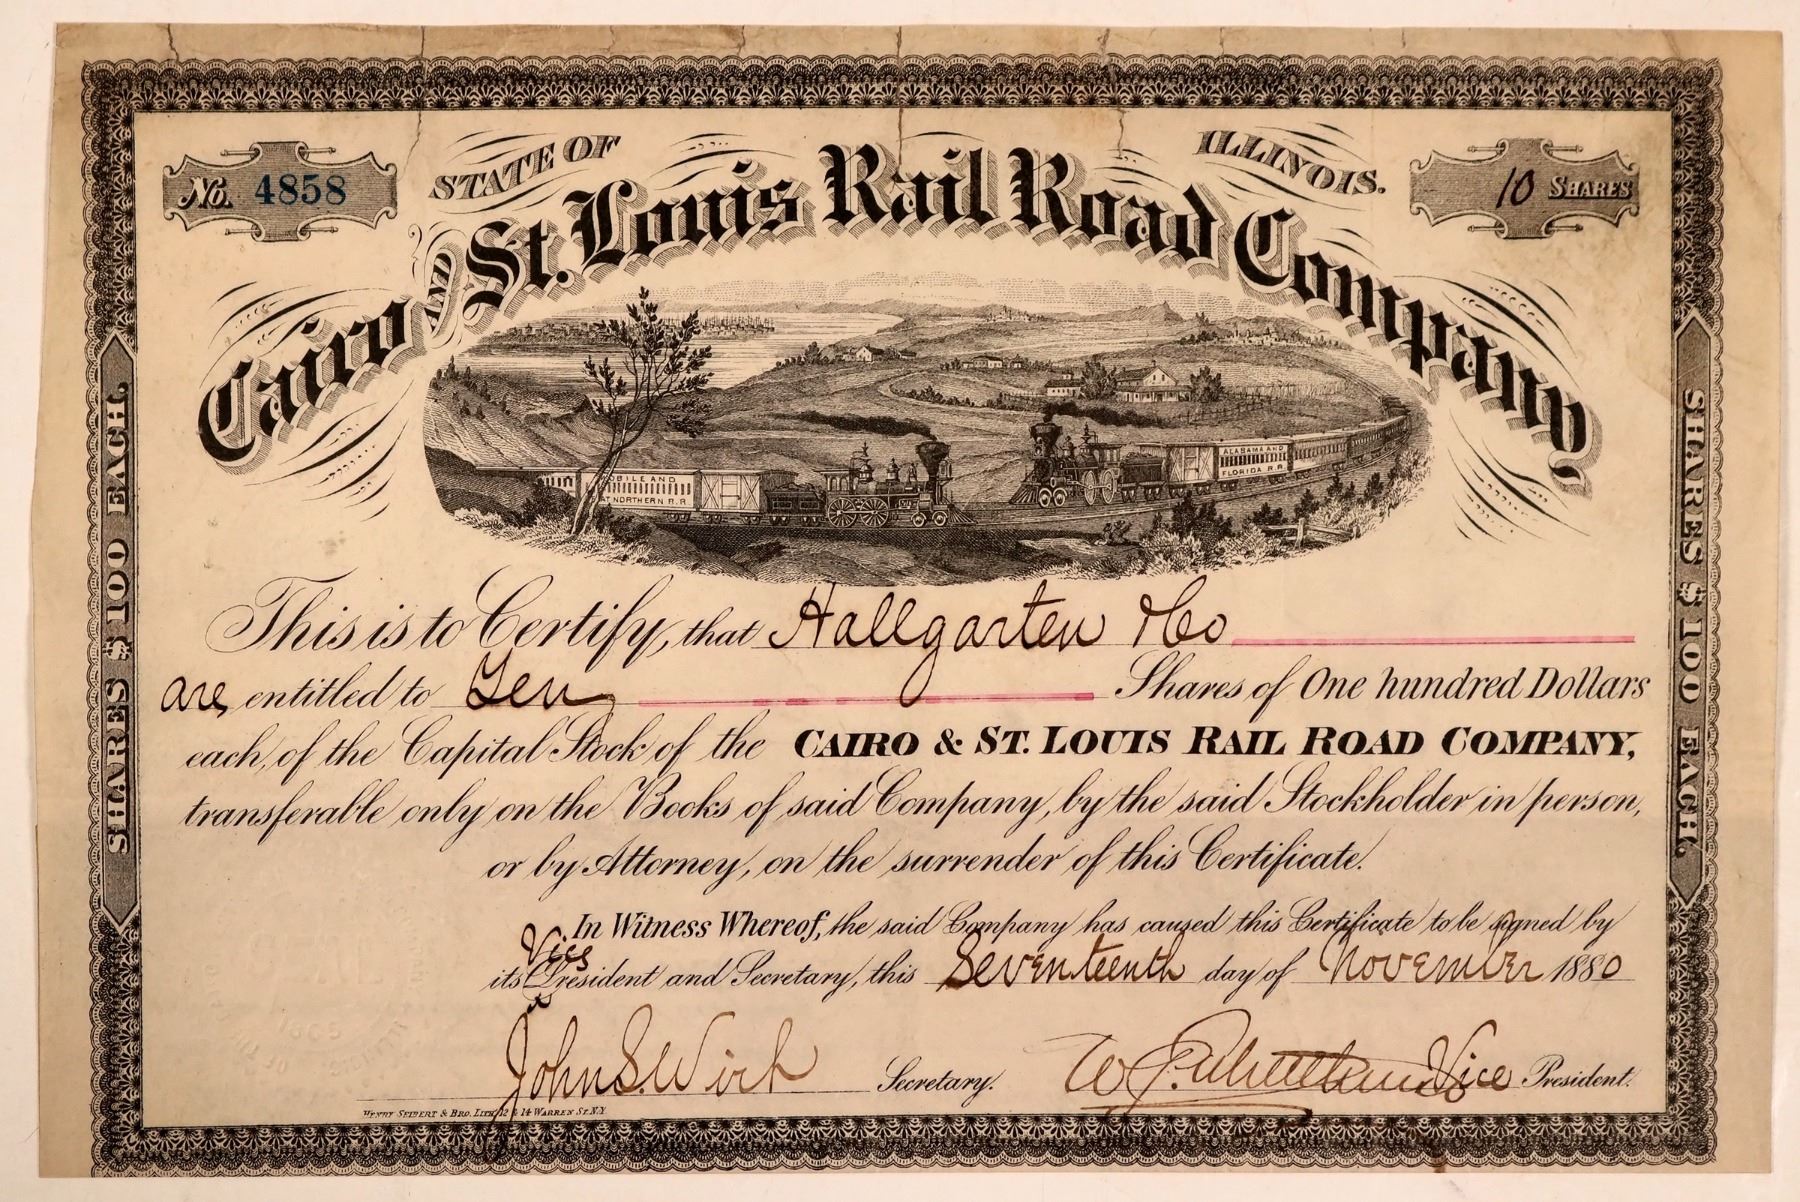 STATE OF ILLINOIS.
No. 4858
10 SHARES
Cairo AND St. Louis Rail Road Company
OBILE AND
T NORTHERN R.R
ALABAMA AND
FLORIDA R.R.
SHARES $100 EACH.
SHARES $100 EACH.
This is to Certify, that Hallgarten & Co
are entitled to Ten Shares of One hundred Dollars
each, of the Capital Stock of the CAIRO & ST. LOUIS RAIL ROAD COMPANY,
transferable only on the Books of said Company, by the said Stockholder in person,
or by Attorney, on the surrender of this Certificate.
In Witness Whereof, the said Company has caused this Certificate to be signed by
its Vice President and Secretary, this Seventeenth day of November 1880
John S. Wich Secretary. Vice President.
HENRY SEIBERT & BRO. LITH. 12 & 14 WARREN ST. N.Y.